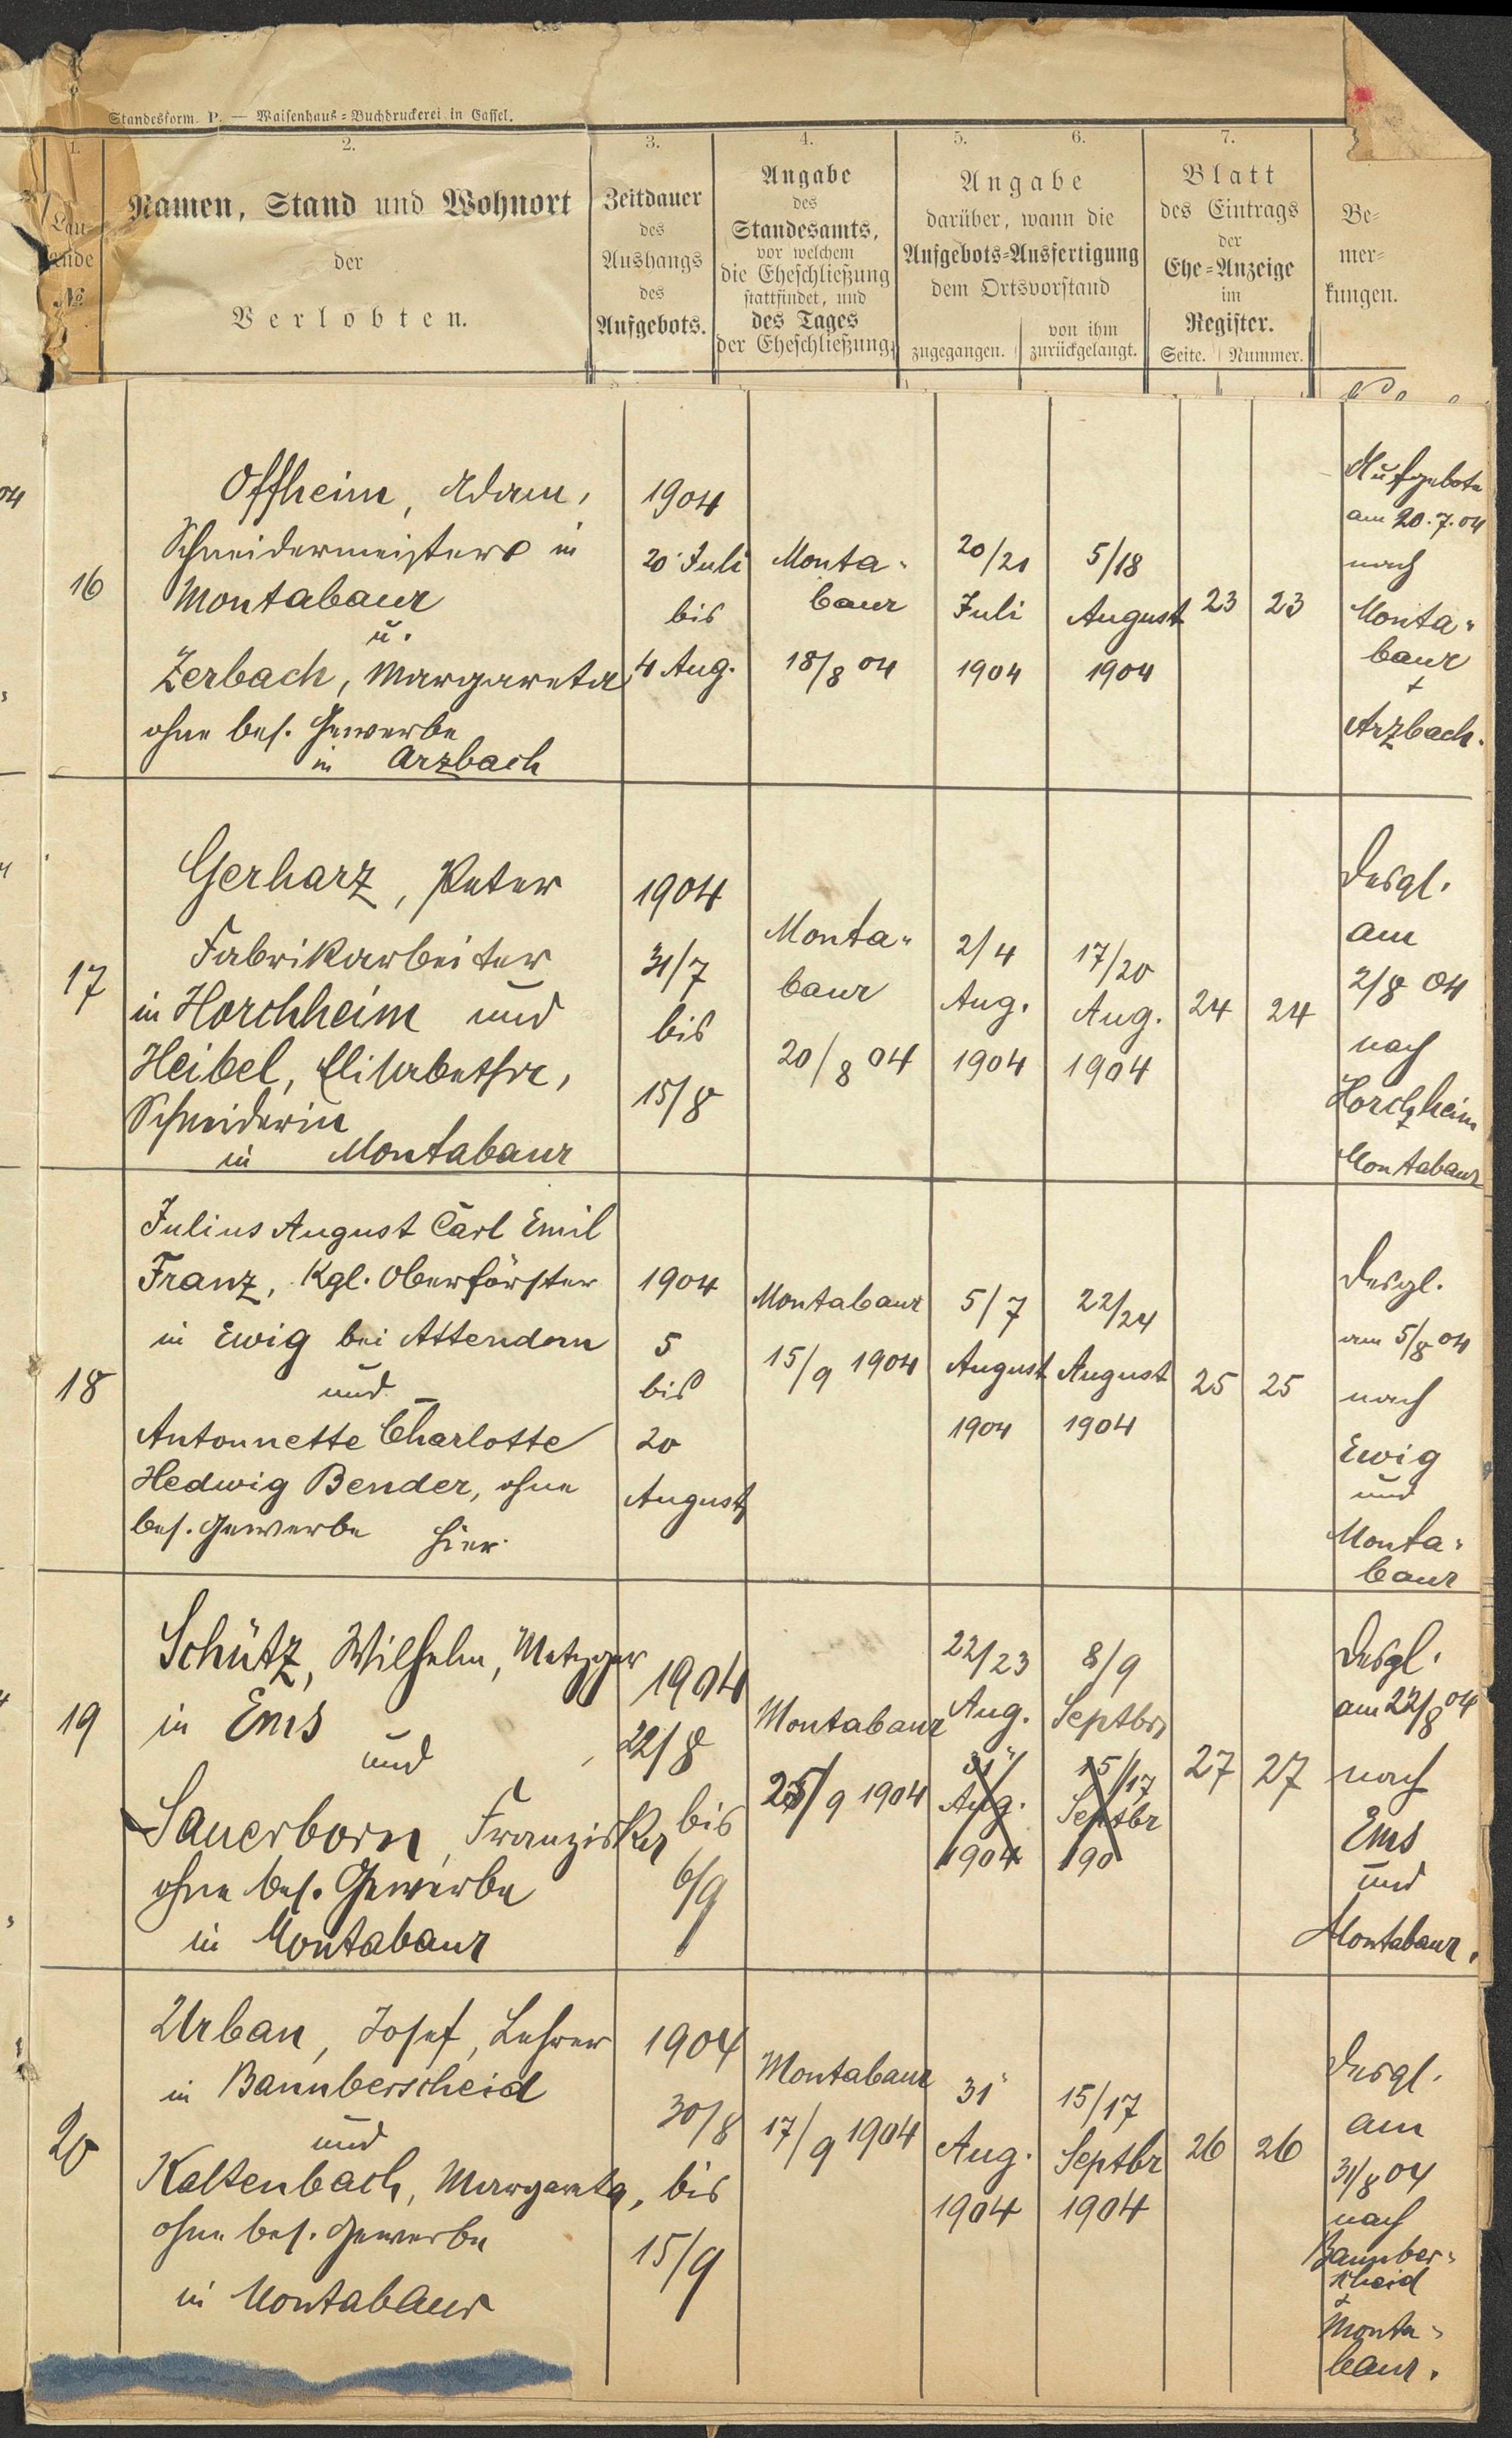 Standesform. P. — Waisenhaus-Buchdruckerei in Cassel.
1.
Lau-
fende
No
2.
Namen, Stand und Wohnort
der
Verlobten.
3.
Zeitdauer
des
Aushangs
des
Aufgebots.
4.
Angabe
des
Standesamts,
vor welchem
die Eheschließung
stattfindet, und
des Tages
der Eheschließung.
5. 6.
Angabe
darüber, wann die
Aufgebots-Ausfertigung
dem Ortsvorstand
zugegangen.
von ihm
zurückgelangt.
7.
Blatt
des Eintrags
der
Ehe-Anzeige
im
Register.
Seite. Nummer.
Be-
mer-
kungen.
16
Offheim, Adam,
Schneidermeister in
Montabaur
u.
Zerbach, Margareta
ohne bes. Gewerbe
in Arzbach
1904
20 Juli
bis
4 Aug.
Monta-
baur
18/8 04
20/21
Juli
1904
5/18
August
1904
23
23
Aufgebote
am 20.7.04
nach
Monta-
baur
+
Arzbach.
17
Gerharz, Peter
Fabrikarbeiter
in Horchheim und
Heibel, Elisabetha,
Schneiderin
in Montabaur
1904
31/7
bis
15/8
Monta-
baur
20/8 04
2/4
Aug.
1904
17/20
Aug.
1904
24
24
Desgl.
am
2/8 04
nach
Horchheim
+
Montabaur
18
Julius August Carl Emil
Franz, Kgl. Oberförster
in Ewig bei Attendorn
und
Antonnette Charlotte
Hedwig Bender, ohne
bes. Gewerbe hier.
1904
5
bis
20
August
Montabaur
15/9 1904
5/7
August
1904
22/24
August
1904
25
25
Desgl.
am 5/8 04
nach
Ewig
und
Monta-
baur
19
Schütz, Wilhelm, Metzger
in Ems
und
Sauerborn, Franziska
ohne bes. Gewerbe
in Montabaur
1904
22/8
bis
6/9
Montabaur
25/9 1904
22/23
Aug.
31
Aug.
1904
8/9
Septbr
15/17
Septbr
190
27
27
Desgl.
am 22/8 04
nach
Ems
und
Montabaur.
20
Urban, Josef, Lehrer
in Bannberscheid
und
Kaltenbach, Margareta,
ohne bes. Gewerbe
in Montabaur
1904
30/8
bis
15/9
Montabaur
17/9 1904
31
Aug.
1904
15/17
Septbr
1904
26
26
Desgl.
am
31/8 04
nach
Bannber-
scheid
+
Monta-
baur.